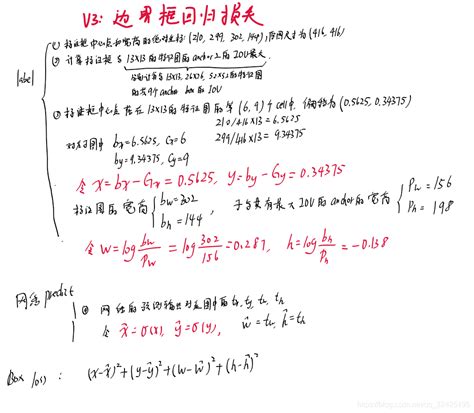 V3: 边界框回归损失
label
① 标注框中心点和宽高的绝对坐标: (210, 299, 302, 144), 原图尺寸为 (416, 416)
② 计算标注框与 13x13 的特征图的 anchor 之间 IOU最大.
13x13, 26x26, 52x52的特征图
9个 anchor box 的 IOU
③ 标注框中心点 落在 13x13 的特征图的第 (6, 9) 个 cell中, 偏移为 (0.5625, 0.34375)
210/416x13 = 6.5625
299/416x13 = 9.34375
对应图中 bx=6.5625, Cx=6
by=9.34375, Cy=9
令 x = bx - Cx = 0.5625, y = by - Cy = 0.34375
标注框的宽高 { bw=302 bh=144, 与其有最大IOU的 anchor的宽高 { Pw=156 Ph=198
令 w = log bw/Pw = log 302/156 = 0.287, h = log bh/Ph = -0.138
网络 predict
④ 网络的预测输出对应图中的 tx, ty, tw, th
令 x̂ = σ(x), ŷ = σ(y), ŵ = tw, ĥ = th
Box loss : (x-x̂)²+(y-ŷ)²+(w-ŵ)²+(h-ĥ)²